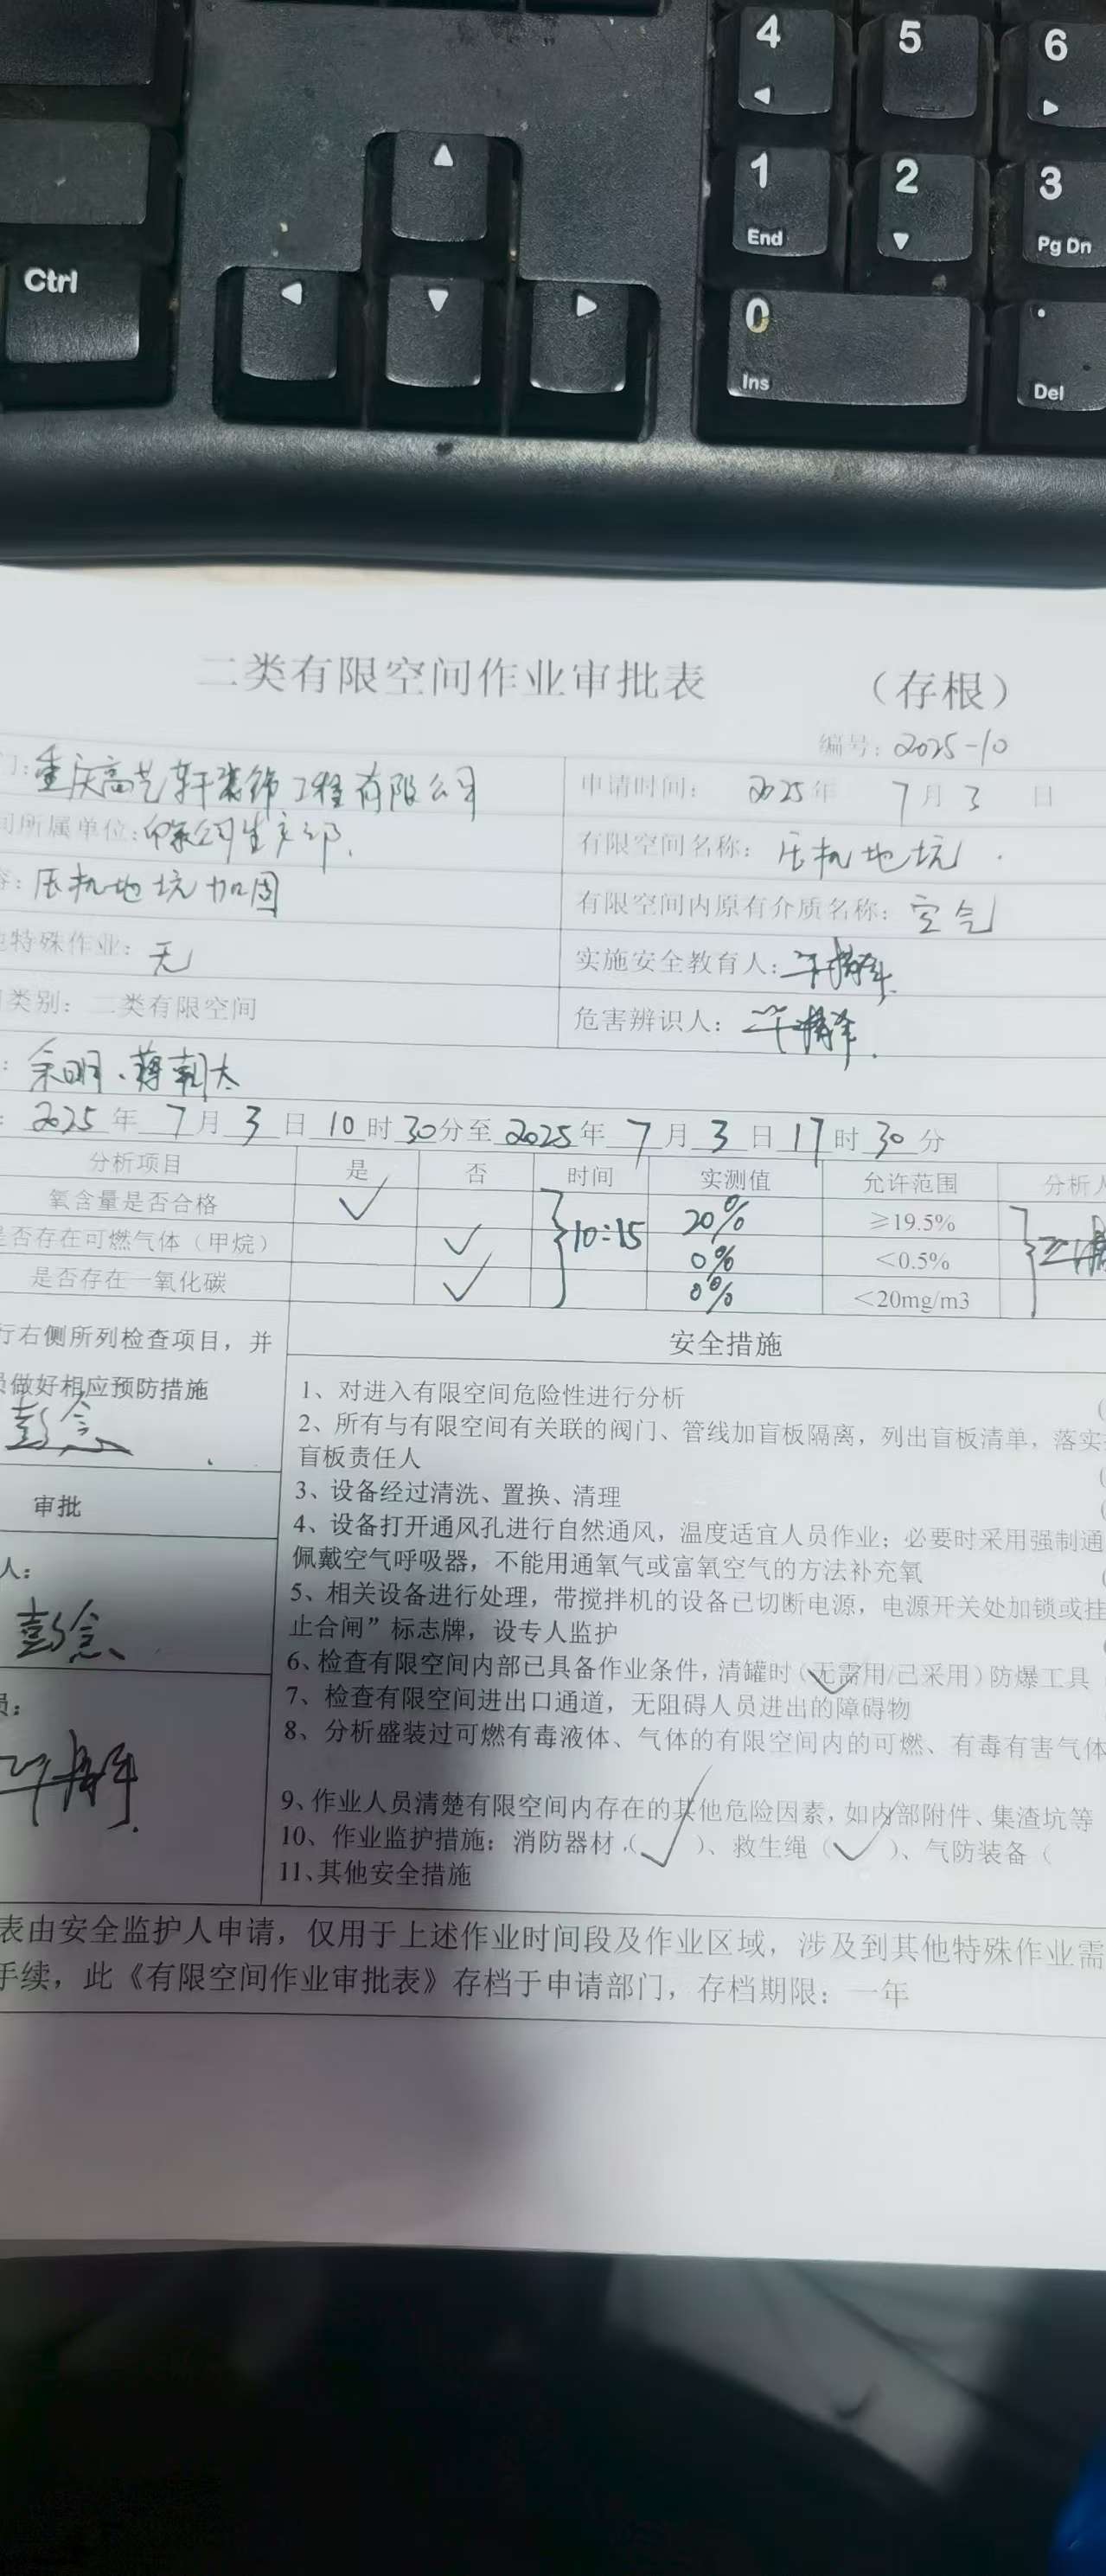 4 5 6
1 2 3
End Pg Dn
Ctrl
0
Ins Del
二类有限空间作业审批表 （存根）
编号：2025-10
门：重庆高艺轩装饰工程有限公司 申请时间： 2025年 7月3 日
间所属单位： 有限空间名称：压机地坑
容：压机地坑加固 有限空间内原有介质名称：空气
他特殊作业：无 实施安全教育人：
类别：二类有限空间 危害辨识人：
：余明、蒋朝太
：2025年 7月 3日 10时30分至2025年 7月 3日17时30分
分析项目 是 否 时间 实测值 允许范围 分析人
氧含量是否合格 ✓ 10:15 20% ≥19.5%
是否存在可燃气体（甲烷） ✓ 0% <0.5%
是否存在一氧化碳 ✓ 0% <20mg/m3
行右侧所列检查项目，并
员做好相应预防措施
审批
人：
员：
安全措施
1、对进入有限空间危险性进行分析 （
2、所有与有限空间有关联的阀门、管线加盲板隔离，列出盲板清单，落实
盲板责任人 （
3、设备经过清洗、置换、清理 （
4、设备打开通风孔进行自然通风，温度适宜人员作业；必要时采用强制通
佩戴空气呼吸器，不能用通氧气或富氧空气的方法补充氧 （
5、相关设备进行处理，带搅拌机的设备已切断电源，电源开关处加锁或挂
止合闸”标志牌，设专人监护
6、检查有限空间内部已具备作业条件，清罐时（无需用/已采用）防爆工具
7、检查有限空间进出口通道，无阻碍人员进出的障碍物
8、分析盛装过可燃有毒液体、气体的有限空间内的可燃、有毒有害气体
9、作业人员清楚有限空间内存在的其他危险因素，如内部附件、集渣坑等
10、作业监护措施：消防器材（✓）、救生绳（✓）、气防装备（
11、其他安全措施
表由安全监护人申请，仅用于上述作业时间段及作业区域，涉及到其他特殊作业需
手续，此《有限空间作业审批表》存档于申请部门，存档期限：一年